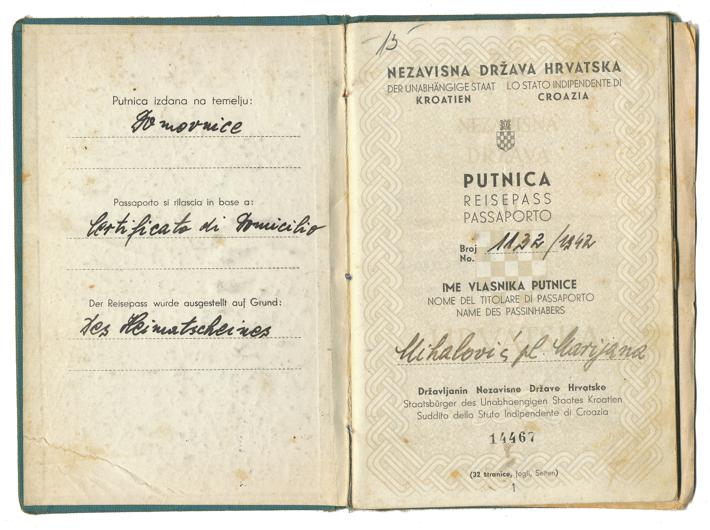 Putnica izdana na temelju:
Domovnice
Passaporto si rilascia in base a:
Certificato di Domicilio
Der Reisepass wurde ausgestellt auf Grund:
Des Heimatscheines
15
NEZAVISNA DRŽAVA HRVATSKA
DER UNABHÄNGIGE STAAT LO STATO INDIPENDENTE DI
KROATIEN CROAZIA
NEZAVISNA
DRŽAVA
PUTNICA
REISEPASS
PASSAPORTO
Broj 1132/1942
No.
IME VLASNIKA PUTNICE
NOME DEL TITOLARE DI PASSAPORTO
NAME DES PASSINHABERS
Mihalović pl. Marijana
Državljanin Nezavisne Države Hrvatske
Staatsbürger des Unabhaengigen Staates Kroatien
Suddito dello Stato Indipendente di Croazia
14467
(32 stranice, fogli, Seiten)
1